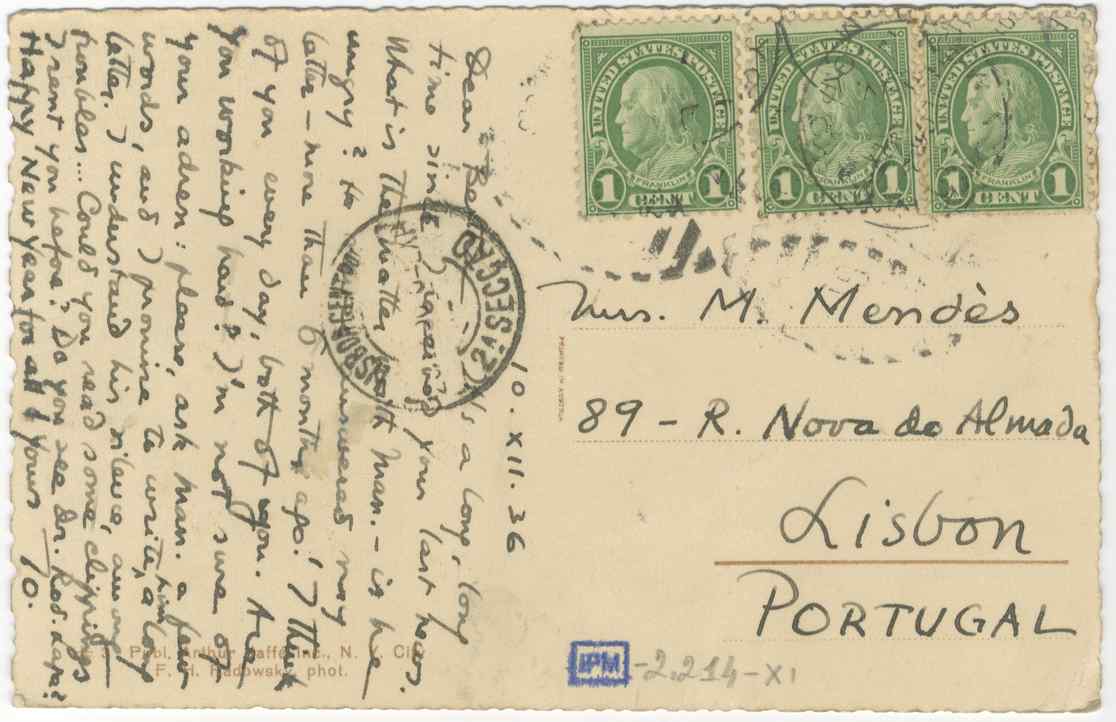 10. XII. 36
Dear
time since I received your last news.
What is the matter with Man. – is he
angry? He answered my
letter – more than 6 months ago! I think
of you every day, both of you. Are
you working hard? I'm not sure of
your adress: please, ask Man. a few
words, and I promise to write him a long
letter. I understand his silence, among
troubles... Could you read some clippings
I sent you before? Do you see Dr. Rod. Lapa?
Happy New Year for all & yours
UNITED STATES POSTAGE
FRANKLIN
1 CENT 1
UNITED STATES POSTAGE
FRANKLIN
1 CENT 1
UNITED STATES POSTAGE
FRANKLIN
1 CENT 1
2A SECÇÃO
M. Mendès
89 – R. Nova do Almada
Lisbon
PORTUGAL
Publ. Arthur Jaffé Inc., N. Y. City
F. H. Radowsky phot.
IPM
-2.214-XI